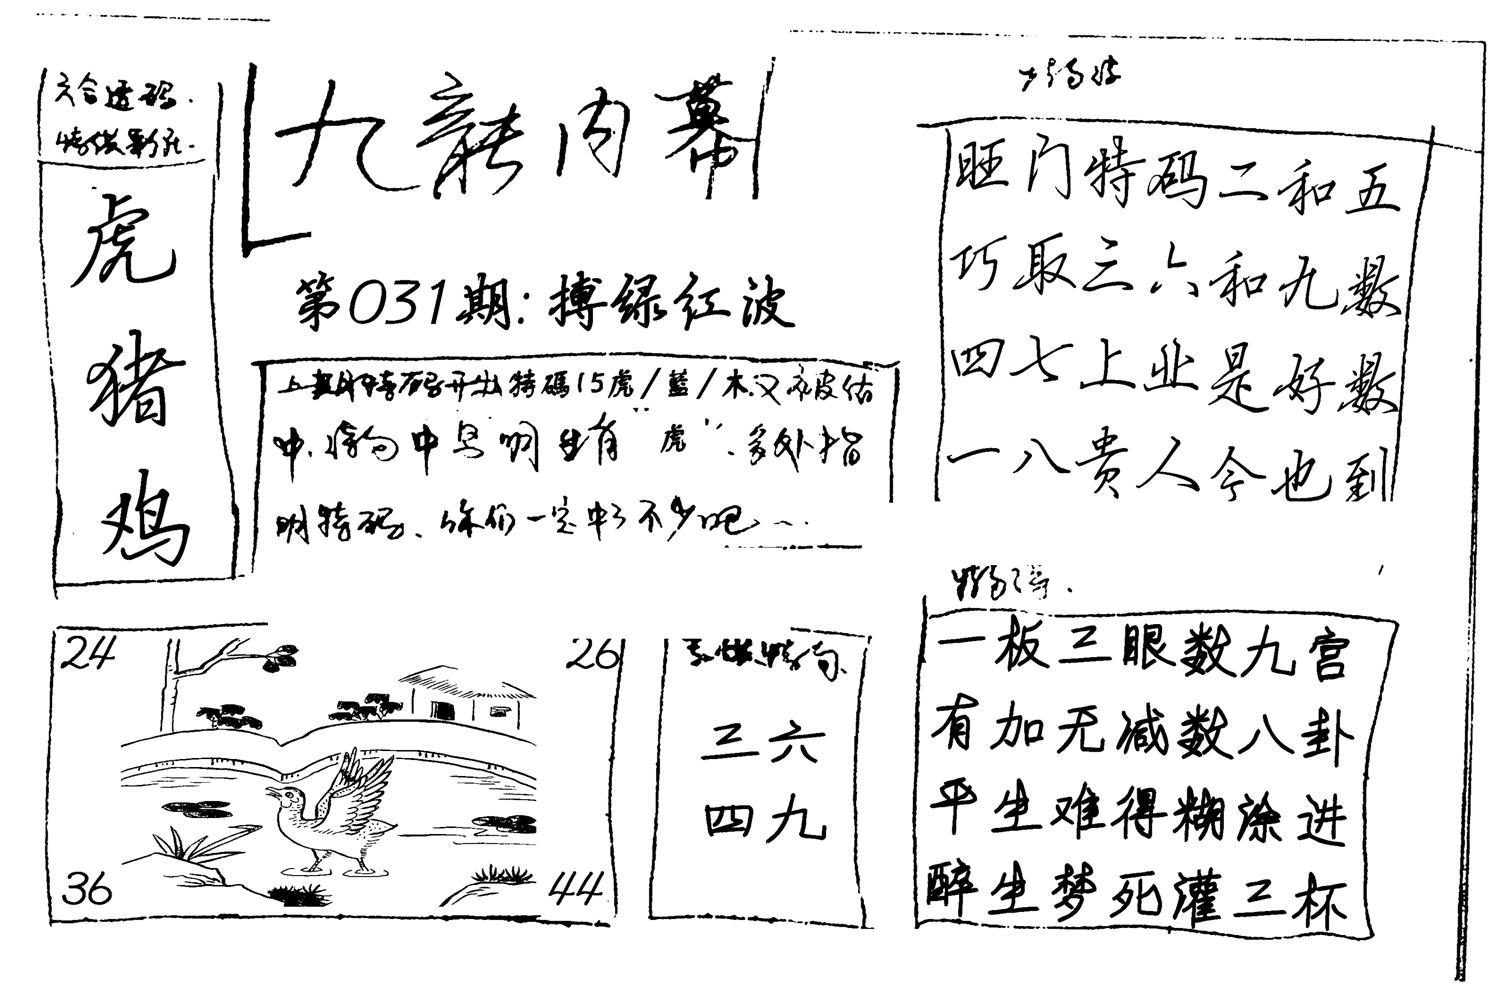 六合透码.
虎
猪
鸡
九龍内幕
第031期:搏绿红波
上期特码开出特碼15虎/藍/木.又被估
中.特句中早明生肖“虎”.多处指
明特码、你们一定中了不少吧…
旺门特码二和五
巧取三六和九数
四七上业是好数
一八贵人今也到
24
26
36
44
三六
四九
一板三眼数九宫
有加无减数八卦
平生难得糊涂进
醉生梦死灌三杯